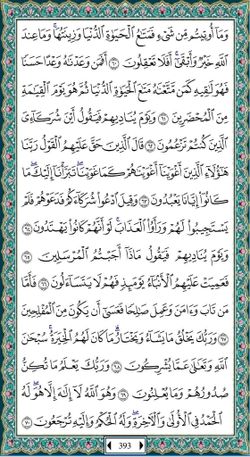 وَمَا أُوتِيتُم مِّن شَىْءٍ فَمَتَـٰعُ ٱلْحَيَوٰةِ ٱلدُّنْيَا وَزِينَتُهَا ۚ وَمَا عِندَ
ٱللَّهِ خَيْرٌ وَأَبْقَىٰٓ ۚ أَفَلَا تَعْقِلُونَ ٦٠ أَفَمَن وَعَدْنَـٰهُ وَعْدًا حَسَنًا
فَهُوَ لَـٰقِيهِ كَمَن مَّتَّعْنَـٰهُ مَتَـٰعَ ٱلْحَيَوٰةِ ٱلدُّنْيَا ثُمَّ هُوَ يَوْمَ ٱلْقِيَـٰمَةِ
مِنَ ٱلْمُحْضَرِينَ ٦١ وَيَوْمَ يُنَادِيهِمْ فَيَقُولُ أَيْنَ شُرَكَآءِىَ
ٱلَّذِينَ كُنتُمْ تَزْعُمُونَ ٦٢ قَالَ ٱلَّذِينَ حَقَّ عَلَيْهِمُ ٱلْقَوْلُ رَبَّنَا
هَـٰٓؤُلَآءِ ٱلَّذِينَ أَغْوَيْنَآ أَغْوَيْنَـٰهُمْ كَمَا غَوَيْنَا ۖ تَبَرَّأْنَآ إِلَيْكَ ۖ مَا
كَانُوٓا۟ إِيَّانَا يَعْبُدُونَ ٦٣ وَقِيلَ ٱدْعُوا۟ شُرَكَآءَكُمْ فَدَعَوْهُمْ فَلَمْ
يَسْتَجِيبُوا۟ لَهُمْ وَرَأَوُا۟ ٱلْعَذَابَ ۚ لَوْ أَنَّهُمْ كَانُوا۟ يَهْتَدُونَ ٦٤
وَيَوْمَ يُنَادِيهِمْ فَيَقُولُ مَاذَآ أَجَبْتُمُ ٱلْمُرْسَلِينَ ٦٥
فَعَمِيَتْ عَلَيْهِمُ ٱلْأَنۢبَآءُ يَوْمَئِذٍ فَهُمْ لَا يَتَسَآءَلُونَ ٦٦ فَأَمَّا
مَن تَابَ وَءَامَنَ وَعَمِلَ صَـٰلِحًا فَعَسَىٰٓ أَن يَكُونَ مِنَ ٱلْمُفْلِحِينَ
٦٧ وَرَبُّكَ يَخْلُقُ مَا يَشَآءُ وَيَخْتَارُ ۗ مَا كَانَ لَهُمُ ٱلْخِيَرَةُ ۚ سُبْحَـٰنَ
ٱللَّهِ وَتَعَـٰلَىٰ عَمَّا يُشْرِكُونَ ٦٨ وَرَبُّكَ يَعْلَمُ مَا تُكِنُّ
صُدُورُهُمْ وَمَا يُعْلِنُونَ ٦٩ وَهُوَ ٱللَّهُ لَآ إِلَـٰهَ إِلَّا هُوَ ۖ لَهُ
ٱلْحَمْدُ فِى ٱلْأُولَىٰ وَٱلْـَٔاخِرَةِ ۖ وَلَهُ ٱلْحُكْمُ وَإِلَيْهِ تُرْجَعُونَ ٧٠
393